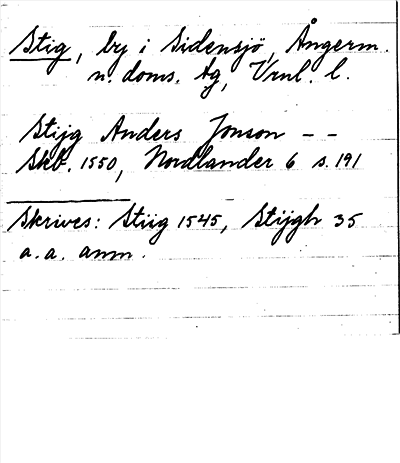 Stig, by i Sidensjö, Ångerm.
n. doms. tg, Vrnl. l.
Stijg Anders Jonson – –
Skb. 1550, Nordlander 6 s. 191
Skrives: Stiig 1545, Stijgh 35
a.a. anm.